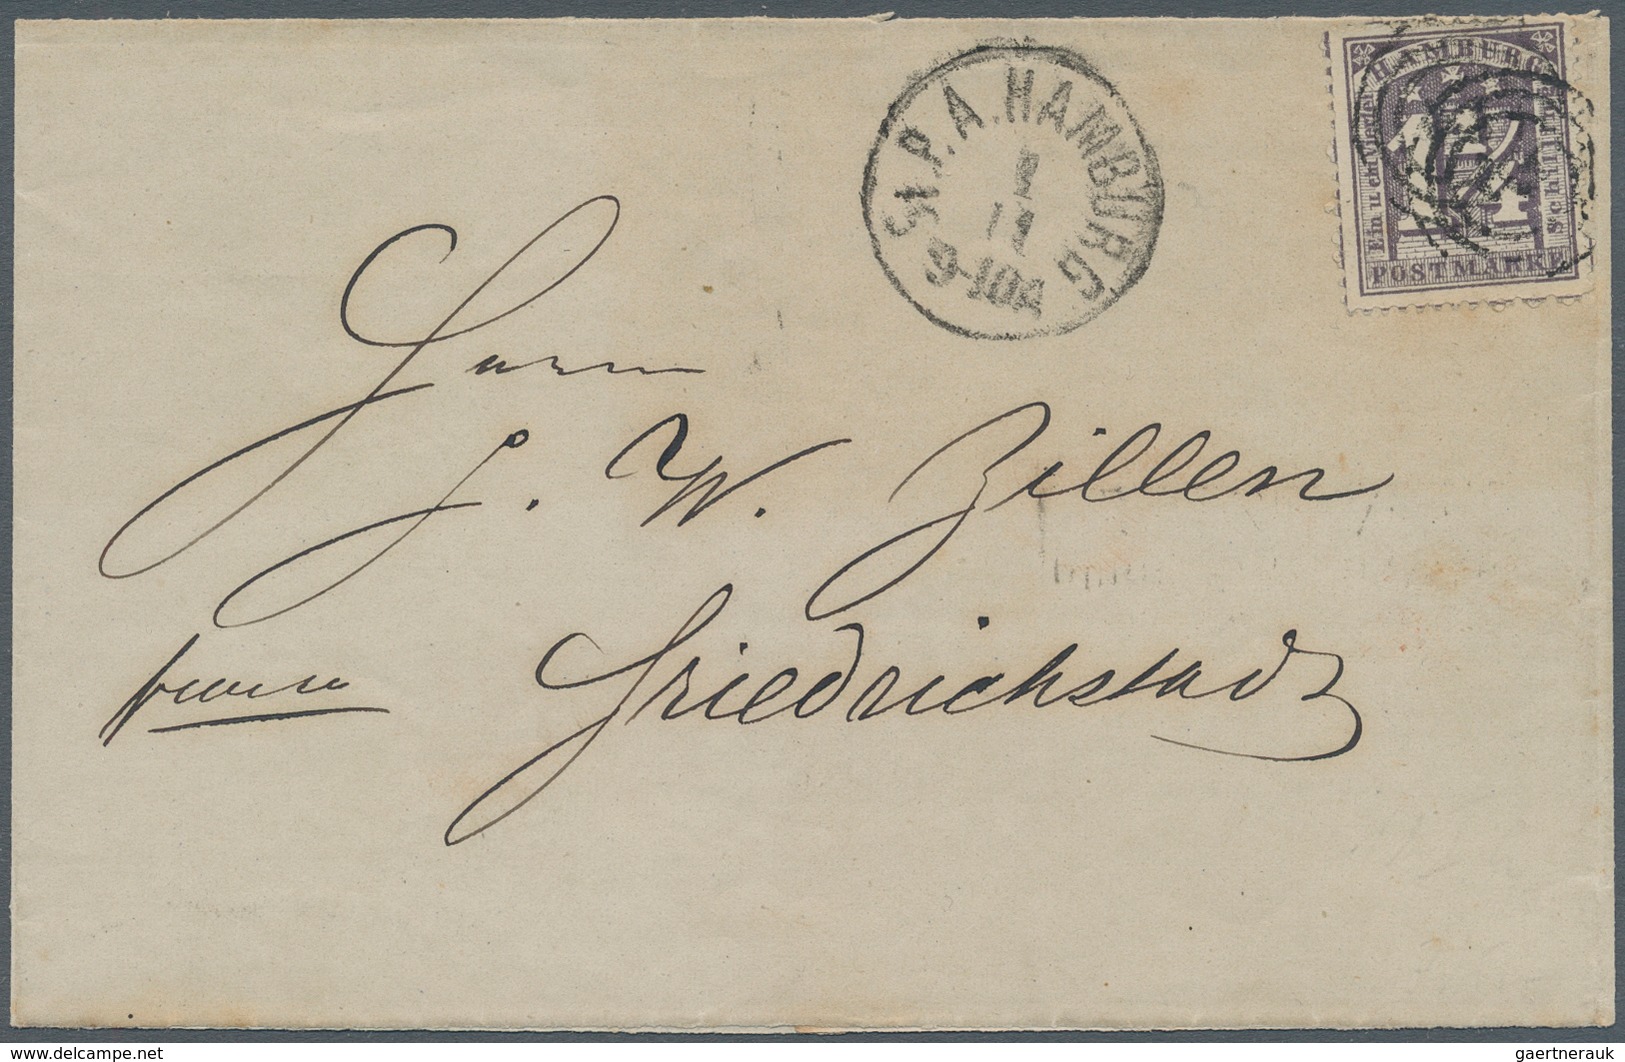 St. P. A. HAMBURG
1
11
9-10A
HAMBURG
Ein u ein viertel
1¼
Schilling
POSTMARKE
Herrn
J. W. Zillen
franco
Friedrichstadt
gaertnerauk
www.delcampe.net